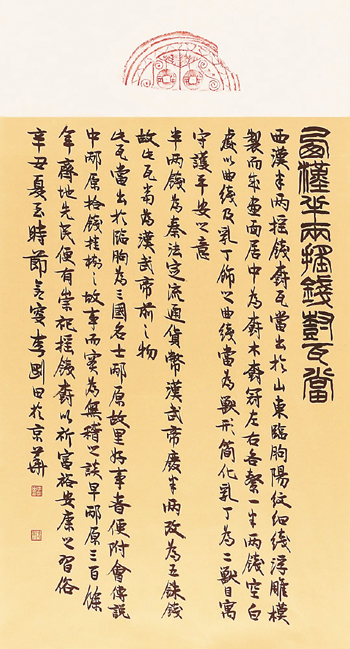 西漢半兩搖錢樹瓦當
西漢半兩搖錢樹瓦當出於山東臨朐陽紋細綫浮雕模
製而成畫面居中為樹木樹冠左右各繫一半兩錢空白
處以曲綫及乳丁飾之曲綫當為獸形简化乳丁為二獸目寓
守護平安之意
半兩錢為秦法定流通貨幣漢武帝廢半兩改為五銖錢
故此瓦當為漢武帝前之物
此瓦當出於臨朐為三國名士邴原故里好事者便附會傳說
中邴原拾錢挂樹之故事而實為無稽之談早邴原三百餘
年齊地先民便有崇祀搖錢樹以祈富裕安康之習俗
辛丑夏至時節
李剛田於京華